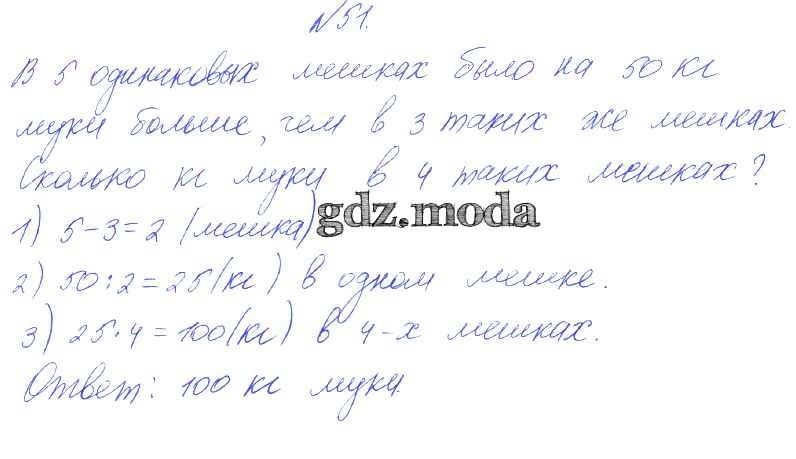 №51.
В 5 одинаковых мешках было на 50 кг
муки больше, чем в 3 таких же мешках.
Сколько кг муки в 4 таких мешках?
1) 5-3=2 (мешка)
gdz.moda
2) 50:2=25(кг) в одном мешке.
3) 25·4=100(кг) в 4-х мешках.
Ответ: 100 кг муки.